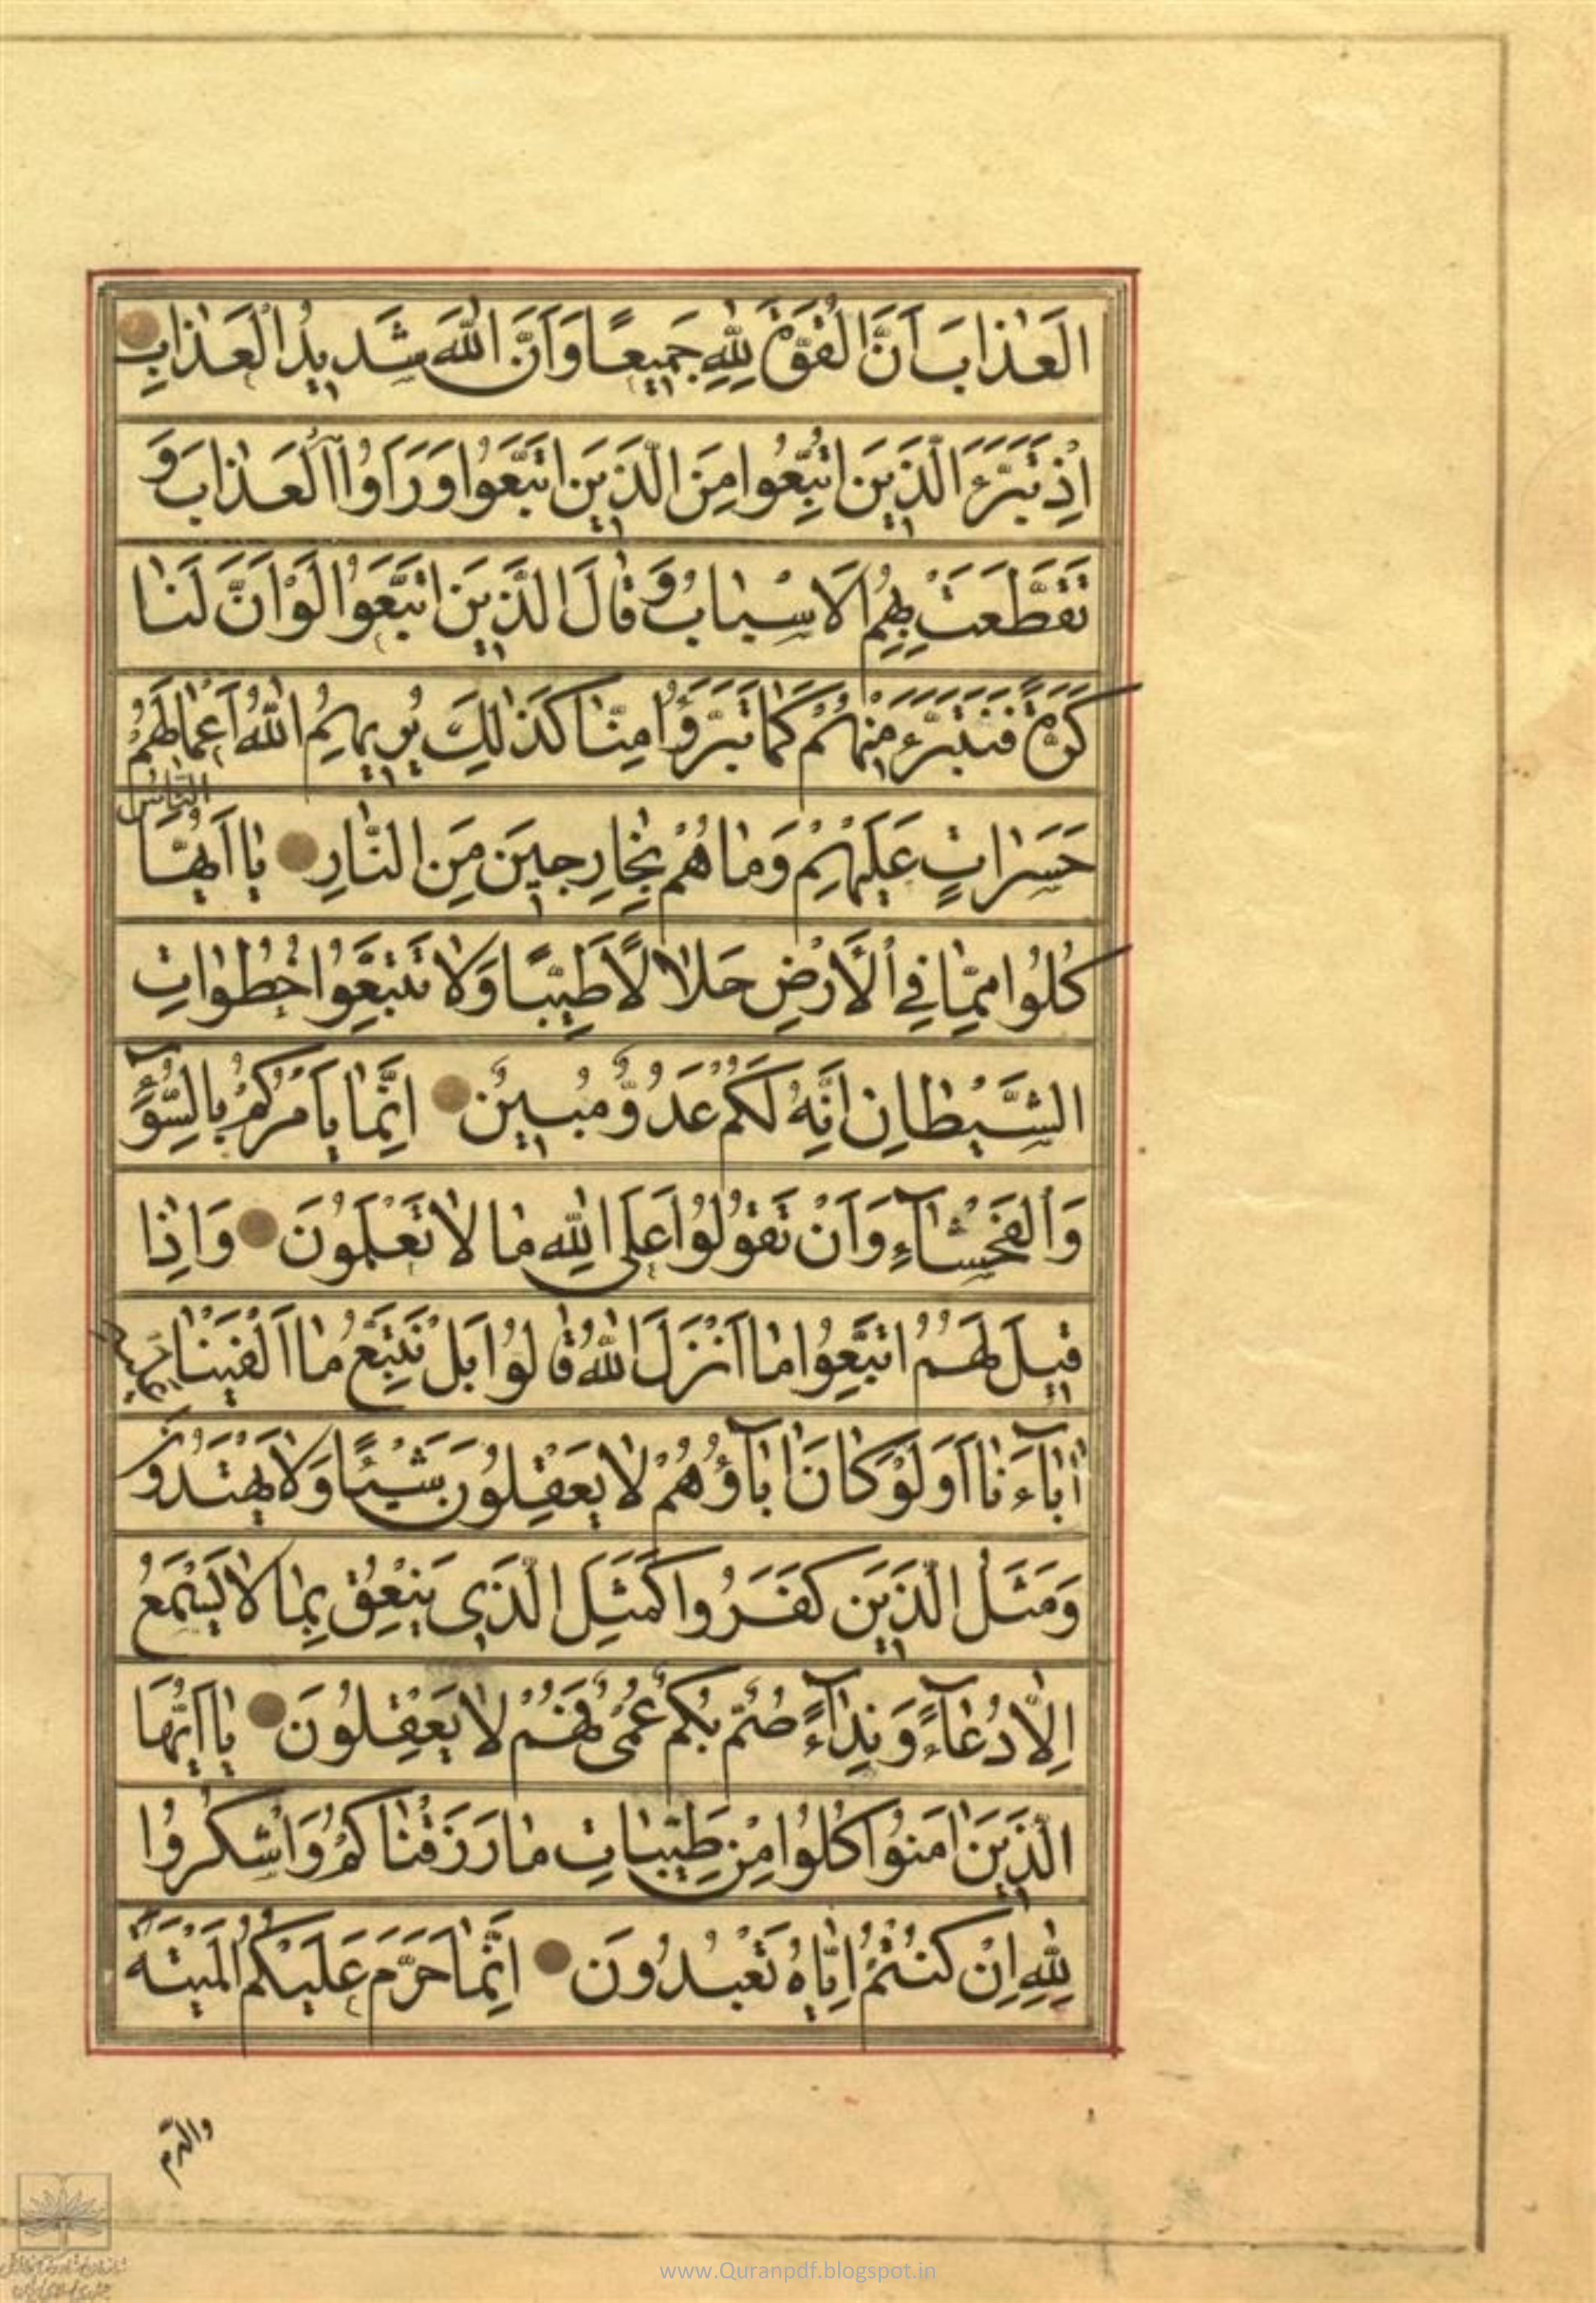 الْعَذَابَ اَنَّ الْقُوَّةَ لِلّٰهِ جَمِيعًا وَاَنَّ اللّٰهَ شَدِيدُ الْعَذَابِ
اِذْ تَبَرَّءَ الَّذِينَ اتُّبِعُوا مِنَ الَّذِينَ اتَّبَعُوا وَرَاَوُا الْعَذَابَ وَ
تَقَطَّعَتْ بِهِمُ الْاَسْبَابُ وَقَالَ الَّذِينَ اتَّبَعُوا لَوْ اَنَّ لَنَا
كَرَّةً فَنَتَبَرَّءَ مِنْهُمْ كَمَا تَبَرَّؤُا مِنَّا كَذٰلِكَ يُرِيهِمُ اللّٰهُ اَعْمَالَهُمْ
حَسَرَاتٍ عَلَيْهِمْ وَمَا هُمْ بِخَارِجِينَ مِنَ النَّارِ يَا اَيُّهَا النَّاسُ
كُلُوا مِمَّا فِي الْاَرْضِ حَلَالًا طَيِّبًا وَلَا تَتَّبِعُوا خُطُوَاتِ
الشَّيْطَانِ اِنَّهُ لَكُمْ عَدُوٌّ مُبِينٌ اِنَّمَا يَاْمُرُكُمْ بِالسُّوٓءِ
وَالْفَحْشَآءِ وَاَنْ تَقُولُوا عَلَى اللّٰهِ مَا لَا تَعْلَمُونَ وَاِذَا
قِيلَ لَهُمُ اتَّبِعُوا مَا اَنْزَلَ اللّٰهُ قَالُوا بَلْ نَتَّبِعُ مَا اَلْفَيْنَا عَلَيْهِ
اٰبَآءَنَا اَوَلَوْ كَانَ اٰبَآؤُهُمْ لَا يَعْقِلُونَ شَيْئًا وَلَا يَهْتَدُونَ
وَمَثَلُ الَّذِينَ كَفَرُوا كَمَثَلِ الَّذِي يَنْعِقُ بِمَا لَا يَسْمَعُ
اِلَّا دُعَآءً وَنِدَآءً صُمٌّ بُكْمٌ عُمْيٌ فَهُمْ لَا يَعْقِلُونَ يَا اَيُّهَا
الَّذِينَ اٰمَنُوا كُلُوا مِنْ طَيِّبَاتِ مَا رَزَقْنَاكُمْ وَاشْكُرُوا
لِلّٰهِ اِنْ كُنْتُمْ اِيَّاهُ تَعْبُدُونَ اِنَّمَا حَرَّمَ عَلَيْكُمُ الْمَيْتَةَ
والدم
www.Quranpdf.blogspot.in